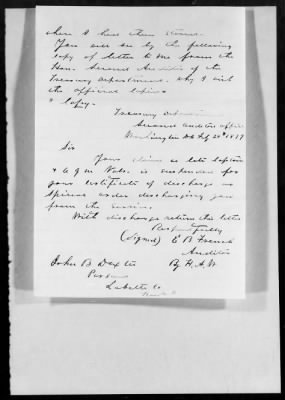 where I have them stored.
You will see by the following
copy of letter to me from the
Hon. Second Auditor of the
Treasury Department. Why I wish
the official copies
copy.
Treasury Department
Second Auditors office
Washington DC July 24th 1877
Sir
Your claim as late Captain
& A Q M Vols. is suspended for
your certificate of discharge or
Special order discharging you
from the service.
With discharge return this letter
Respectfully
(Signed) E B French
Auditor
John B Dexter By H. A. W.
Parsons
Labette Co